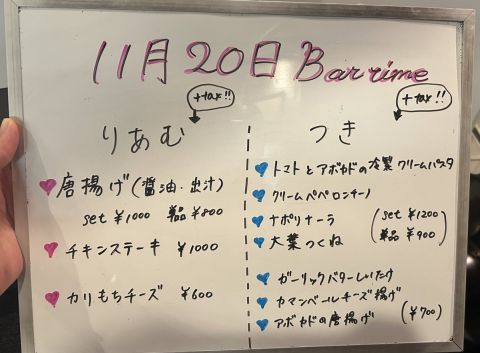 11月20日 Bar rime
+tax!!
+tax!!
りあむ
唐揚げ(醤油・出汁)
set ¥1000 単品 ¥800
チキンステーキ ¥1000
カリもちチーズ ¥600
つき
トマトとアボカドの冷製クリームパスタ
クリームペペロンチーノ
ナポリナーラ
大葉つくね
(set ¥1200
単品 ¥900)
ガーリックバターしいたけ
カマンベールチーズ揚げ
アボカドの唐揚げ
(¥700)